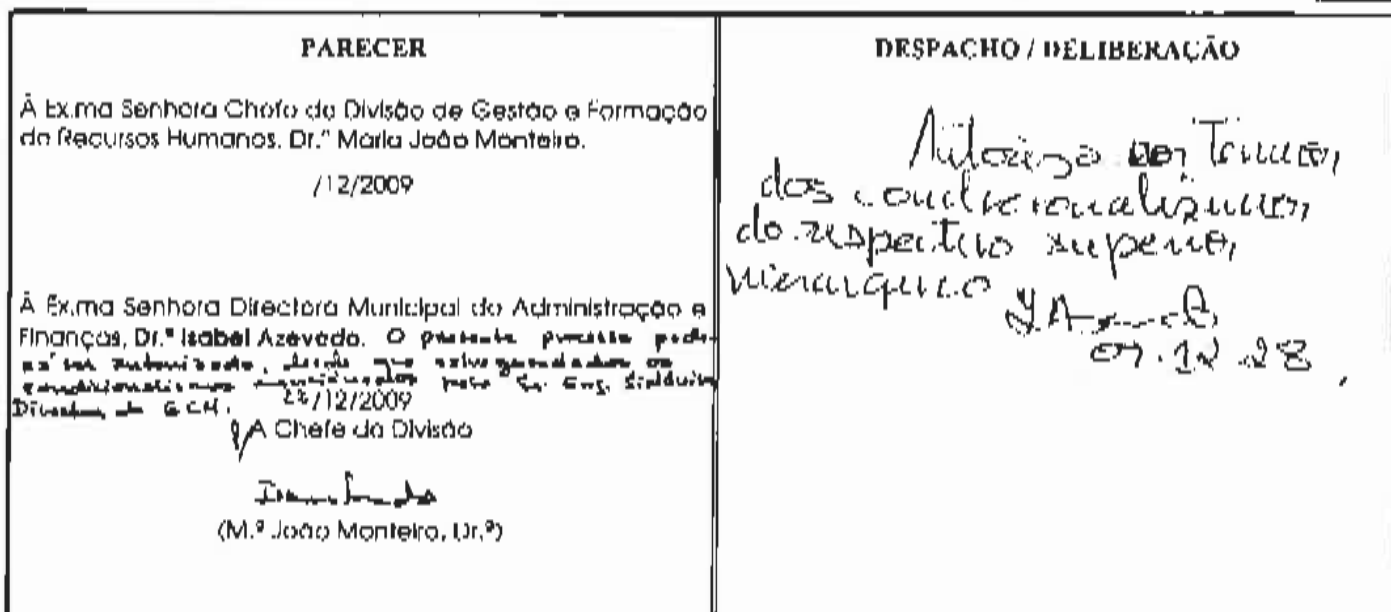 PARECER
À Ex.ma Senhora Chefe da Divisão de Gestão e Formação
de Recursos Humanos, Dr.ª Maria João Monteiro.
/12/2009
À Ex.ma Senhora Directora Municipal da Administração e
Finanças, Dr.ª Isabel Azevedo. O presente processo pode-
rá ser autorizado, desde que salvaguardados os
condicionalismos pelo Sr. Eng.
Director GCM.
28/12/2009
A Chefe da Divisão
(M.ª João Monteiro, Dr.ª)
DESPACHO / DELIBERAÇÃO
Autorizo nos Termos,
dos condicionalismos,
do respectivo superior,
hierarquico
09.12.28